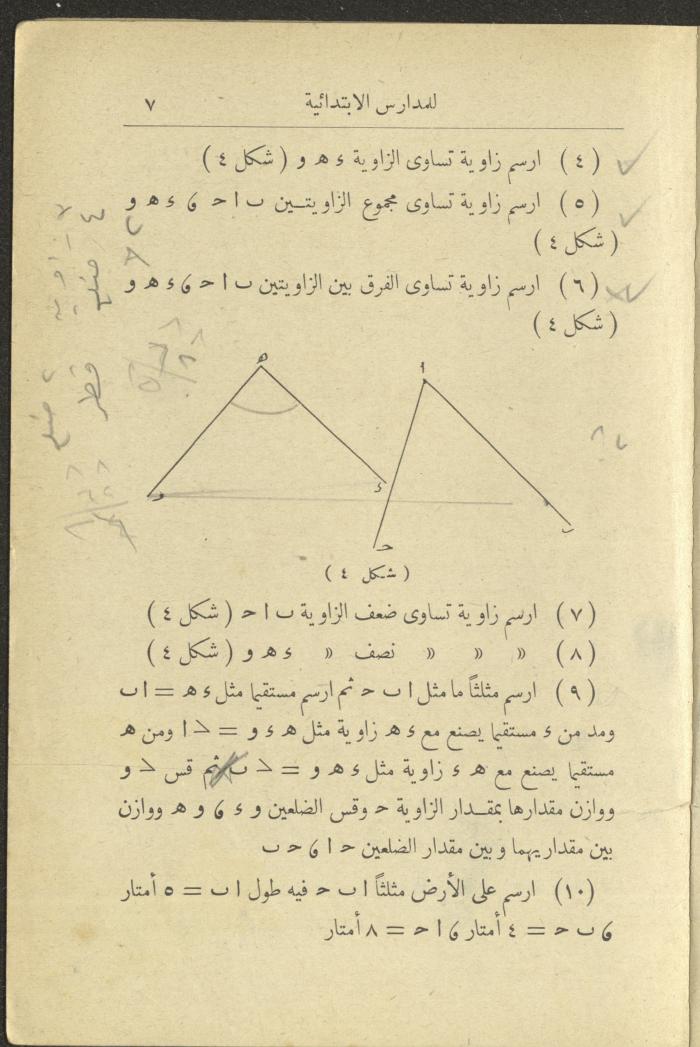 للمدارس الابتدائية ٧
(٤) ارسم زاوية تساوى الزاوية ء ه و (شكل ٤)
(٥) ارسم زاوية تساوى مجموع الزاويتين ٮ ا حـ ۶ ء ه و
(شكل ٤)
(٦) ارسم زاوية تساوى الفرق بين الزاويتين ٮ ا حـ ۶ ء ه و
(شكل ٤)
ه
ا
و
ء
ٮ
حـ
(شكل ٤)
(٧) ارسم زاوية تساوى ضعف الزاوية ٮ ا حـ (شكل ٤)
(٨) » » » نصف » ء ه و (شكل ٤)
(٩) ارسم مثلثاً ما مثل ا ٮ حـ ثم ارسم مستقيما مثل ء ه = ا ٮ
ومد من ء مستقيما يصنع مع ء ه زاوية مثل ه ء و = ∠ ا ومن ه
مستقيما يصنع مع ه ء زاوية مثل ء ه و = ∠ ٮ ثم قس ∠ و
ووازن مقدارها بمقدار الزاوية حـ وقس الضلعين و ء ۶ و ه ووازن
بين مقداريهما وبين مقدار الضلعين حـ ا ۶ حـ ٮ
(١٠) ارسم على الأرض مثلثاً ا ٮ حـ فيه طول ا ٮ = ٥ أمتار
۶ ٮ حـ = ٤ أمتار ۶ ا حـ = ٨ أمتار